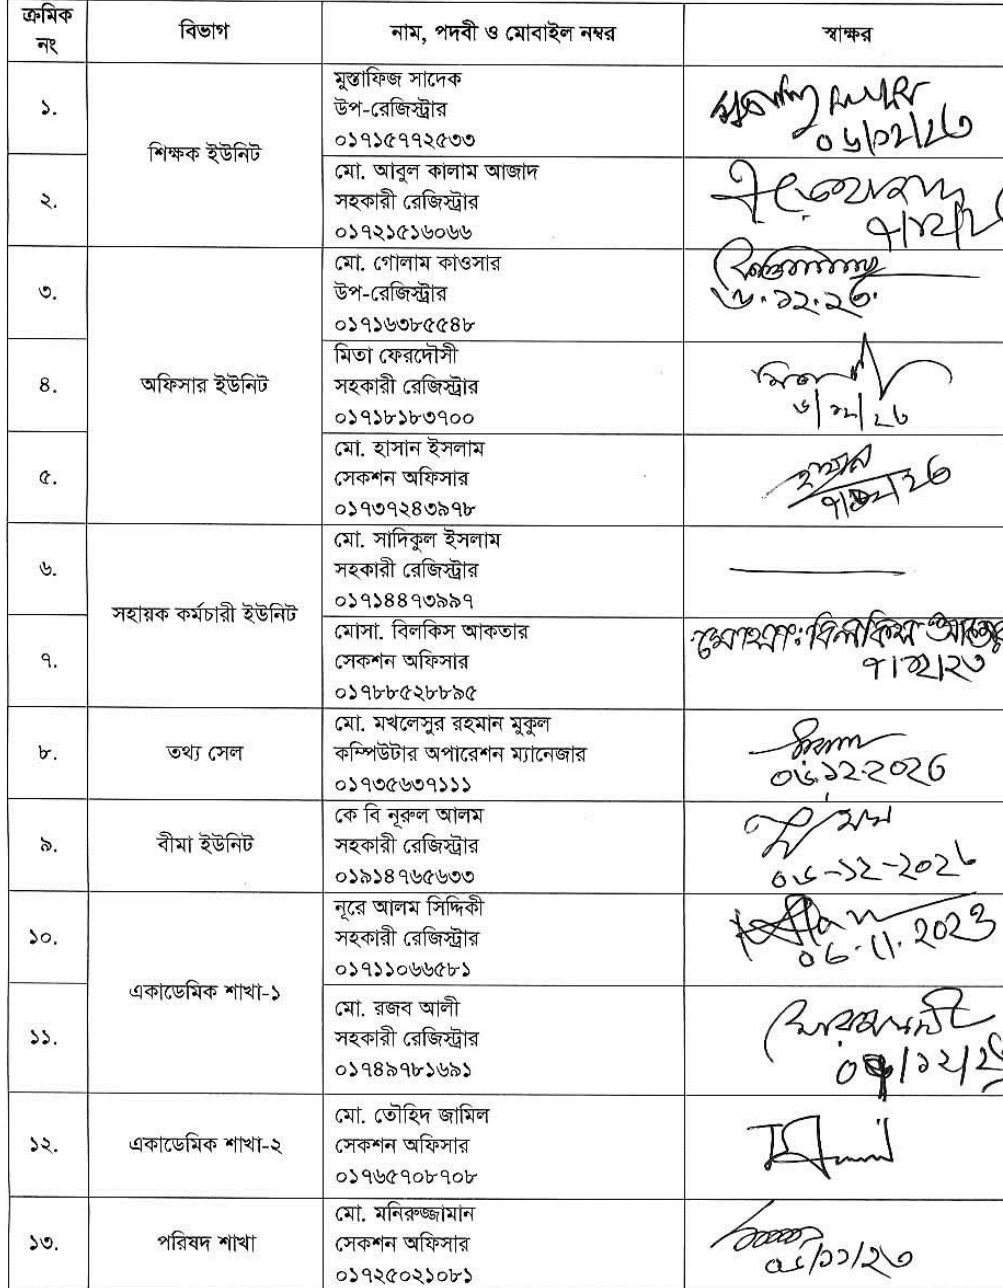 ক্রমিক নং বিভাগ নাম, পদবী ও মোবাইল নম্বর স্বাক্ষর
১. শিক্ষক ইউনিট
মুস্তাফিজ সাদেক
উপ-রেজিস্ট্রার
০১৭১৫৭৭২৫৩৩
০৬/১২/২৩
২.
মো. আবুল কালাম আজাদ
সহকারী রেজিস্ট্রার
০১৭২১৫১৬০৬৬
৩. অফিসার ইউনিট
মো. গোলাম কাওসার
উপ-রেজিস্ট্রার
০১৭১৬৩৮৫৫৪৮
৬.১২.২৩.
৪.
মিতা ফেরদৌসী
সহকারী রেজিস্ট্রার
০১৭১৮১৮৩৭০০
৬/১২/২৩
৫.
মো. হাসান ইসলাম
সেকশন অফিসার
০১৭৩৭২৪৩৯৭৮
৬. সহায়ক কর্মচারী ইউনিট
মো. সাদিকুল ইসলাম
সহকারী রেজিস্ট্রার
০১৭১৪৪৭৩৯৯৭
৭.
মোসা. বিলকিস আকতার
সেকশন অফিসার
০১৭৮৮৫২৮৮৯৫
মোসাঃ বিলকিস আকতার
৭/১২/২৩
৮. তথ্য সেল
মো. মখলেসুর রহমান মুকুল
কম্পিউটার অপারেশন ম্যানেজার
০১৭৩৫৬৩৭১১১
০৬.১২.২০২৩
৯. বীমা ইউনিট
কে বি নূরুল আলম
সহকারী রেজিস্ট্রার
০১৯১৪৭৬৫৬৩৩
০৬-১২-২০২৩
১০. একাডেমিক শাখা-১
নূরে আলম সিদ্দিকী
সহকারী রেজিস্ট্রার
০১৭১১০৬৬৫৮১
06.11.2023
১১.
মো. রজব আলী
সহকারী রেজিস্ট্রার
০১৭৪৯৭৮১৬৯১
১২. একাডেমিক শাখা-২
মো. তৌহিদ জামিল
সেকশন অফিসার
০১৭৬৫৭০৮৭০৮
১৩. পরিষদ শাখা
মো. মনিরুজ্জামান
সেকশন অফিসার
০১৭২৫০২১০৮১
০৬/১১/২৩